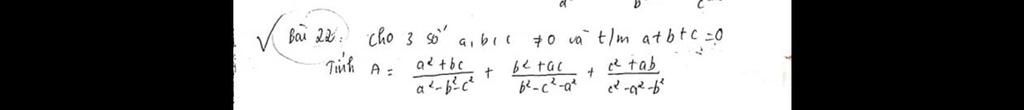 Bài 22: Cho 3 số a, b, c ≠ 0 và t/m a+b+c=0
Tính A = \frac{a²+bc}{a²-b²-c²} + \frac{b²+ac}{b²-c²-a²} + \frac{c²+ab}{c²-a²-b²}